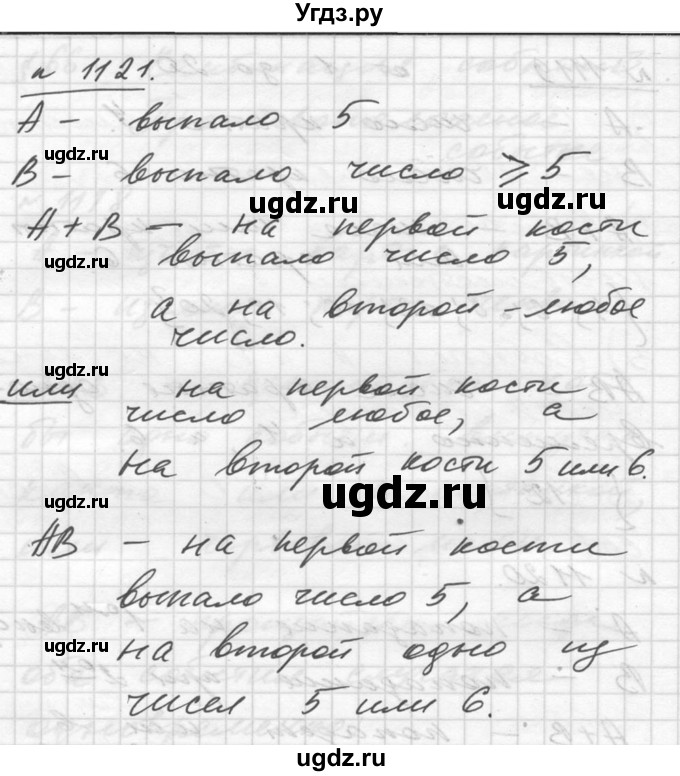 Угдз.ру
n 1121.
A - выпало 5
ugdz.ru
B - выпало число ⩾ 5
ugdz.ru ugdz.ru
A + B — на первой кости
ugdz.ru выпало число 5,
а на второй - любое
число.
ugdz.ru
или на первой кости
число любое, а
на второй кости 5 или 6.
ugdz.ru ugdz.ru
AB — на первой кости
выпало число 5, а
ugdz.ru на второй одно из
чисел 5 или 6.
ugdz.ru